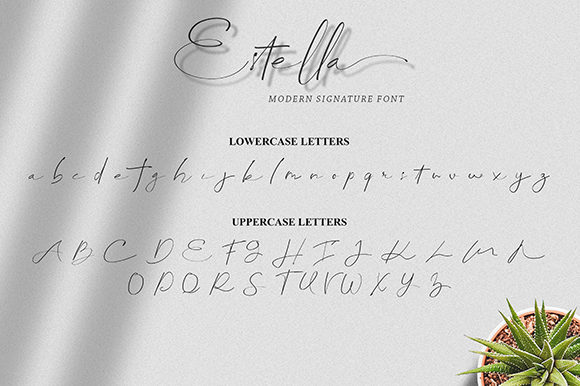 Estella
MODERN SIGNATURE FONT
LOWERCASE LETTERS
a b c d e f g h i j k l m n o p q r s t u v w x y z
UPPERCASE LETTERS
A B C D E F G H I J K L M N
O P Q R S T U V W X Y Z